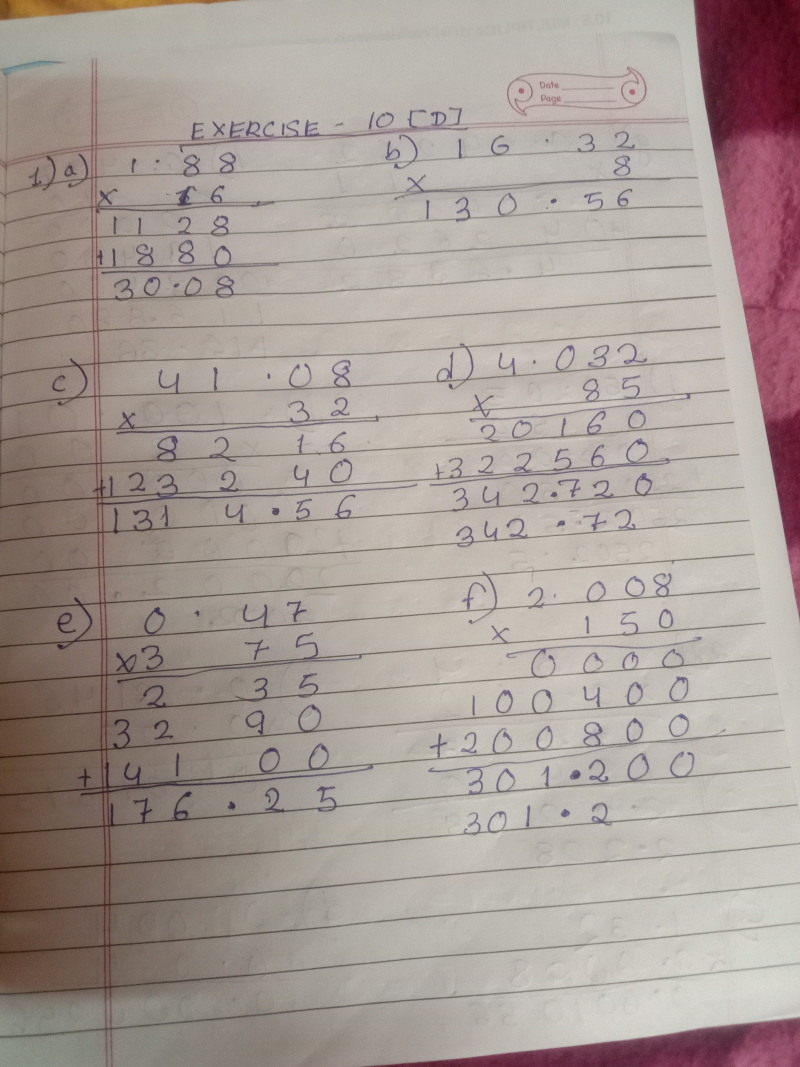 Date
Page
EXERCISE - 10 [D]
1) a) 1.88
x 16
1128
+1880
30.08
b) 16.32
x 8
130.56
c) 41.08
x 32
82 16
+123 2 40
131 4.56
d) 4.032
x 85
20160
+322560
342.720
342.72
e) 0.47
x3 75
2 35
32 90
+141 00
176.25
f) 2.008
x 150
0000
100400
+200800
301.200
301.2